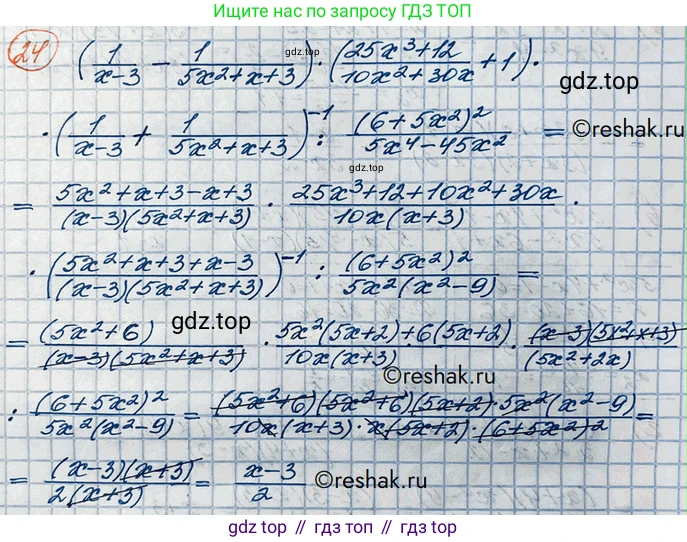 Ищите нас по запросу ГДЗ ТОП
24 (1/(x-3) - 1/(5x²+x+3)) · ((25x³+12)/(10x²+30x) + 1) ·
gdz.top
· (1/(x-3) + 1/(5x²+x+3))⁻¹ : (6+5x²)²/(5x⁴-45x²) = ©reshak.ru
= (5x²+x+3-x+3)/((x-3)(5x²+x+3)) · (25x³+12+10x²+30x)/(10x(x+3)) ·
· ((5x²+x+3+x-3)/((x-3)(5x²+x+3)))⁻¹ : (6+5x²)²/(5x²(x²-9)) =
gdz.top
= (5x²+6)/((x-3)(5x²+x+3)) · (5x²(5x+2)+6(5x+2))/(10x(x+3)) · ((x-3)(5x²+x+3))/(5x²+2x)
©reshak.ru
: (6+5x²)²/(5x²(x²-9)) = ((5x²+6)(5x²+6)(5x+2)·5x²(x²-9))/(10x(x+3)·x(5x+2)·(6+5x²)²) =
= ((x-3)(x+3))/(2(x+3)) = (x-3)/2 ©reshak.ru
gdz.top // гдз.топ // gdz.top // гдз.топ